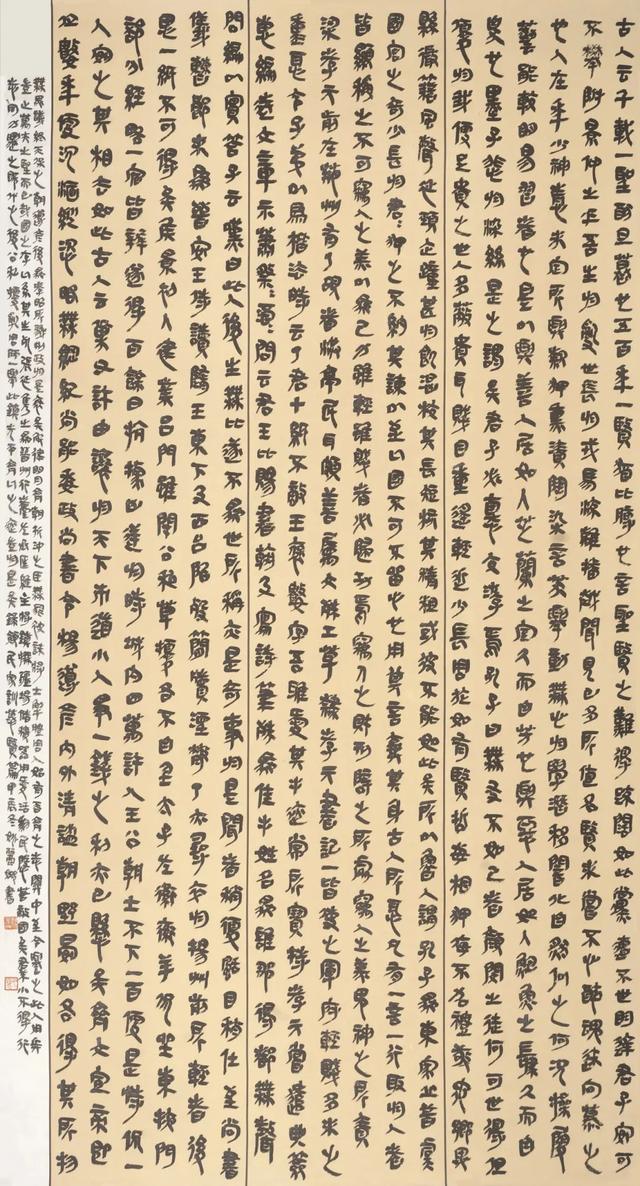 古人云千載一聖猶旦暮也五百年一賢猶比髆也言聖賢之難得疏闊如此儻遭不世明達君子安可
不攀附景仰之乎吾生於亂世長於戎馬流離播越聞見已多所值名賢未嘗不心醉魂迷向慕之
也人在年少神情未定所與款狎熏漬陶染言笑舉動無心於學潛移暗化自然似之何況操履
藝能較明易習者也是以與善人居如入芝蘭之室久而自芳也與惡人居如入鮑魚之肆久而自
臭也墨子悲於染絲是之謂矣君子必慎交遊焉孔子曰無友不如己者顏閔之徒何可世得但
優於我便足貴之世人多蔽貴耳賤目重遙輕近少長周旋如有賢哲每相狎侮不加禮敬他鄉異
縣微藉風聲延頸企踵甚於飢渴校其長短覈其精粗或彼不能如此矣所以魯人謂孔子為東家丘昔虞
國宮之奇少長於君君狎之不納其諫以至亡國不可不留心也用其言棄其身古人所恥凡有一言一行取於人者
皆顯稱之不可竊人之美以為己力雖輕雖賤者必歸功焉竊人之財刑辟之所處竊人之美鬼神之所責
梁孝元前在荊州有丁覘者洪亭民耳頗善屬文殊工草隸孝元書記一皆使之軍府輕賤多未之
重恥令子弟以為楷法時云丁君十紙不敵王褒數字吾雅愛其手迹常所寶持孝元嘗遣典籤
惠編送文章示蕭祭酒問云君王比賜書翰及寫詩筆殊為佳手姓名為誰那得都無聲
問編以實答子雲歎曰此人後生無比遂不為世所稱亦是奇事於是聞者稍復刮目稍仕至尚書
儀曹郎末為晉安王侍讀隨王東下及西臺陷歿簡牘湮散丁亦尋卒於揚州前所輕者後
思一紙不可得矣侯景初入建業臺門雖閉公私草擾各不自全太子左衛率羊侃坐東掖門
部分經略一宿皆辦遂得百餘日抗拒兇逆於時城內四萬許人王公朝士不下一百便是恃侃一
人安之其相去如此古人云巢父許由讓於天下市道小人爭一錢之利亦已懸矣齊文宣帝即
位數年便沉湎縱恣略無綱紀尚能委政尚書令楊遵彥內外清謐朝野晏如各得其所物
無異議終天保之朝遵彥後為孝昭所戮刑政於是衰矣斛律明月齊朝折沖之臣無罪被誅將士解體周人始有吞齊之志關中至今譽之此人用兵
豈止萬夫之望而已哉國之存亡係其生死張延雋之為晉州行臺左丞匡維主將鎮撫疆埸儲積器用愛活黎民隱若敵國矣羣小不得行
志同力遷之既代之後公私擾亂周師一舉此鎮先平齊亡之迹啟於是矣錄顏氏家訓慕賢篇甲辰冬書